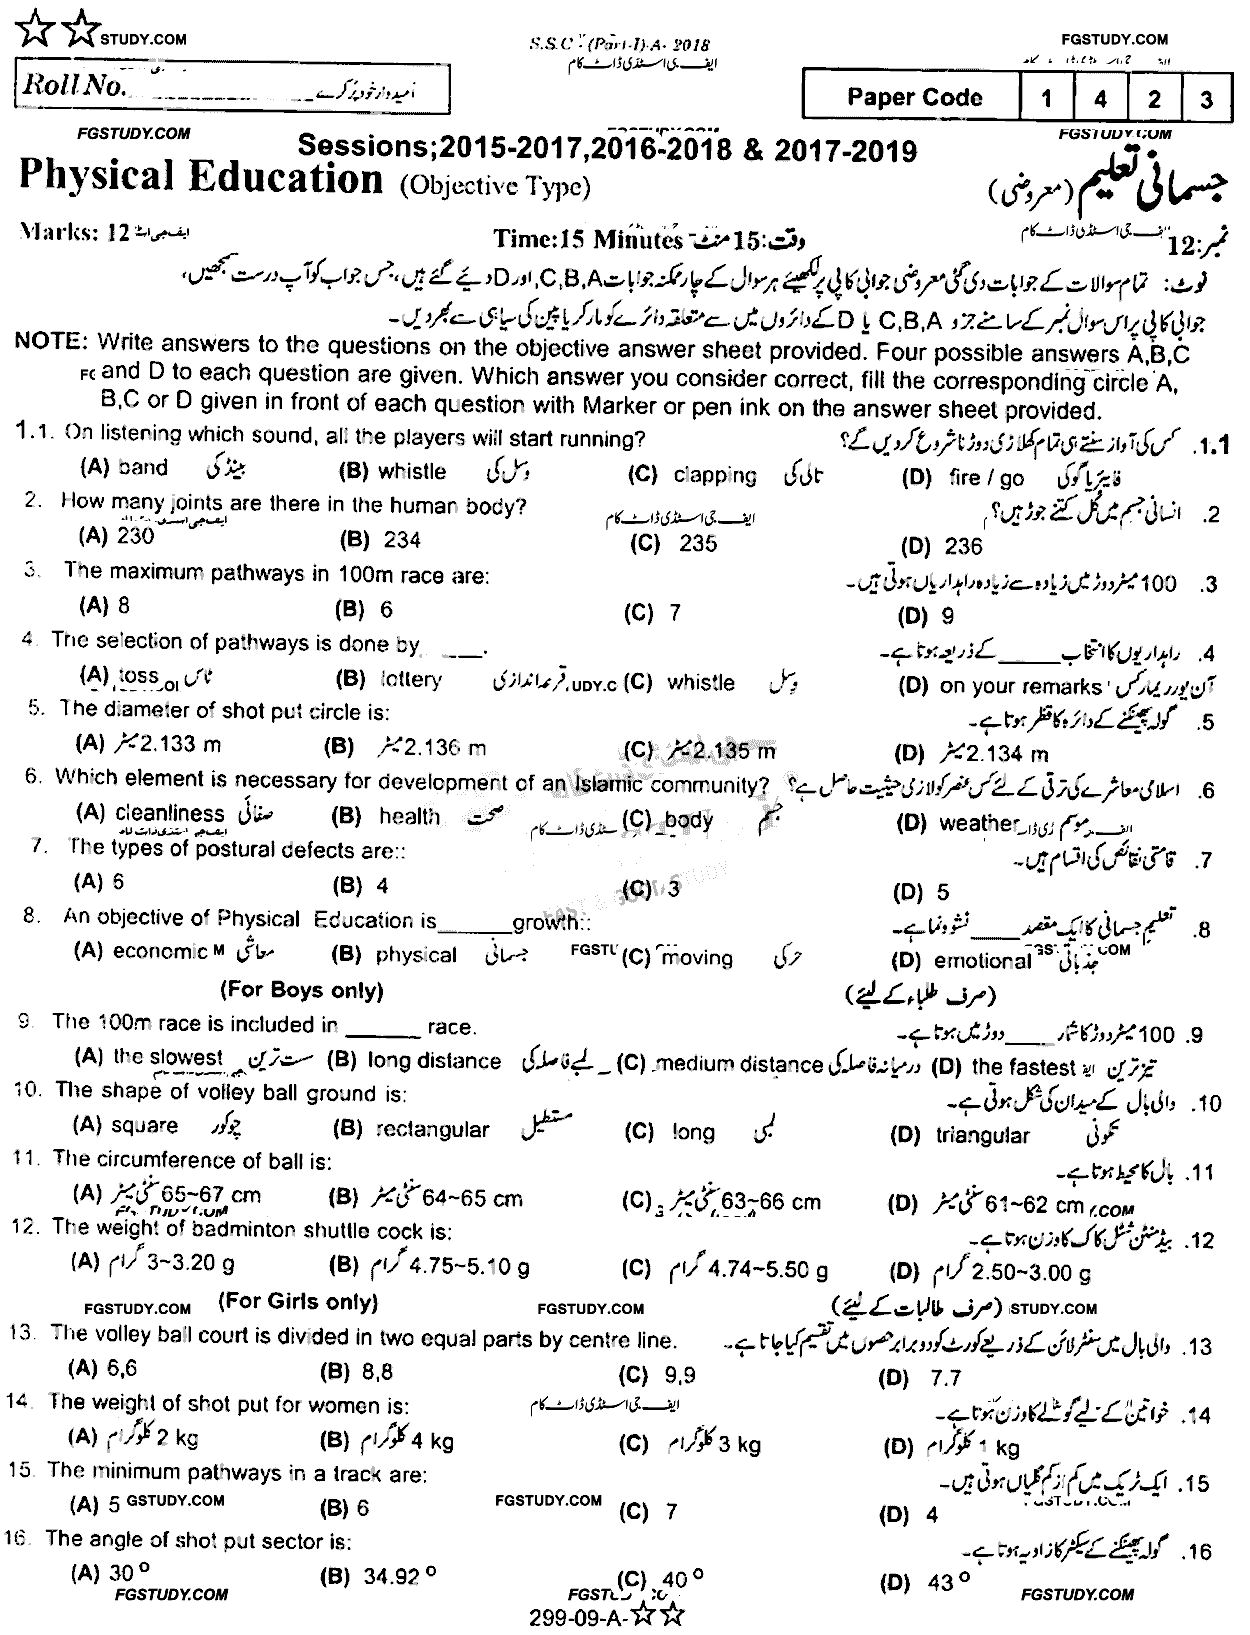 STUDY.COM
S.S.C (Part-I)-A- 2018
FGSTUDY.COM
ایف جی اسٹڈی ڈاٹ کام
Roll No. امیدوار خود پُر کرے
Paper Code 1 4 2 3
FGSTUDY.COM
FGSTUDY.COM
Sessions;2015-2017,2016-2018 & 2017-2019
Physical Education (Objective Type) جسمانی تعلیم (معروضی)
Marks: 12 Time:15 Minutes وقت:15 منٹ نمبر:12
ایف جی اسٹڈی ڈاٹ کام
نوٹ: تمام سوالات کے جوابات دی گئی معروضی جوابی کاپی پر لکھیئے ہر سوال کے چار ممکنہ جوابات C,B,A, اور D دیئے گئے ہیں، جس جواب کو آپ درست سمجھیں،
جوابی کاپی پر اس سوال نمبر کے سامنے جزو C,B,A یا D کے دائروں میں سے متعلقہ دائرے کو مارکر یا پین کی سیاہی سے بھر دیں۔
NOTE: Write answers to the questions on the objective answer sheet provided. Four possible answers A,B,C
and D to each question are given. Which answer you consider correct, fill the corresponding circle A,
B,C or D given in front of each question with Marker or pen ink on the answer sheet provided.
1.1. On listening which sound, all the players will start running? کس کی آواز سنتے ہی تمام کھلاڑی دوڑنا شروع کر دیں گے؟ 1.1.
(A) band بینڈ کی (B) whistle وسل کی (C) clapping تالی کی (D) fire / go فائر یا گو کی
2. How many joints are there in the human body? انسانی جسم میں کُل کتنے جوڑ ہیں؟ 2.
ایف جی اسٹڈی ڈاٹ کام
(A) 230 (B) 234 (C) 235 (D) 236
3. The maximum pathways in 100m race are: 100 میٹر دوڑ میں زیادہ سے زیادہ راہداریاں ہوتی ہیں۔ 3.
(A) 8 (B) 6 (C) 7 (D) 9
4. The selection of pathways is done by ____. راہداریوں کا انتخاب _____ کے ذریعہ ہوتا ہے۔ 4.
(A) toss ٹاس (B) lottery قرعہ اندازی (C) whistle وسل (D) on your remarks آن یور ریمارکس
5. The diameter of shot put circle is: گولہ پھینکنے کے دائرہ کا قطر ہوتا ہے۔ 5.
(A) میٹر 2.133 m (B) میٹر 2.136 m (C) میٹر 2.135 m (D) میٹر 2.134 m
6. Which element is necessary for development of an Islamic community? اسلامی معاشرے کی ترقی کے لئے کس عنصر کو لازمی حیثیت حاصل ہے؟ 6.
(A) cleanliness صفائی (B) health صحت (C) body جسم (D) weather موسم
7. The types of postural defects are:: قامتی نقائص کی اقسام ہیں۔ 7.
(A) 6 (B) 4 (C) 3 (D) 5
8. An objective of Physical Education is______growth:: تعلیم جسمانی کا ایک مقصد ____ نشوونما ہے۔ 8.
(A) economic معاشی (B) physical جسمانی (C) moving حرکی (D) emotional جذباتی
(For Boys only) (صرف طلباء کے لیئے)
9. The 100m race is included in ______ race. 100 میٹر دوڑ کا شمار ____ دوڑ میں ہوتا ہے۔ 9.
(A) the slowest سست ترین (B) long distance لمبے فاصلہ کی (C) medium distance درمیانہ فاصلہ کی (D) the fastest تیز ترین
10. The shape of volley ball ground is: والی بال کے میدان کی شکل ہوتی ہے۔ 10.
(A) square چوکور (B) rectangular مستطیل (C) long لمبی (D) triangular تکونی
11. The circumference of ball is: بال کا محیط ہوتا ہے۔ 11.
(A) سنٹی میٹر 65~67 cm (B) سنٹی میٹر 64~65 cm (C) سنٹی میٹر 63~66 cm (D) سنٹی میٹر 61~62 cm
12. The weight of badminton shuttle cock is: بیڈمنٹن شٹل کاک کا وزن ہوتا ہے۔ 12.
(A) گرام 3~3.20 g (B) گرام 4.75~5.10 g (C) گرام 4.74~5.50 g (D) گرام 2.50~3.00 g
FGSTUDY.COM (For Girls only) FGSTUDY.COM (صرف طالبات کے لیئے) STUDY.COM
13. The volley ball court is divided in two equal parts by centre line. والی بال میں سنٹر لائن کے ذریعے کورٹ کو دو برابر حصوں میں تقسیم کیا جاتا ہے۔ 13.
(A) 6,6 (B) 8,8 (C) 9,9 (D) 7.7
14. The weight of shot put for women is: ایف جی اسٹڈی ڈاٹ کام خواتین کے لیے گولے کا وزن ہوتا ہے۔ 14.
(A) کلوگرام 2 kg (B) کلوگرام 4 kg (C) کلوگرام 3 kg (D) کلوگرام 1 kg
15. The minimum pathways in a track are: ایک ٹریک میں کم از کم گلیاں ہوتی ہیں۔ 15.
(A) 5 GSTUDY.COM (B) 6 FGSTUDY.COM (C) 7 (D) 4
16. The angle of shot put sector is: گولہ پھینکنے کے سیکٹر کا زاویہ ہوتا ہے۔ 16.
(A) 30° (B) 34.92° (C) 40° (D) 43°
FGSTUDY.COM FGSTUDY.COM
299-09-A-☆☆